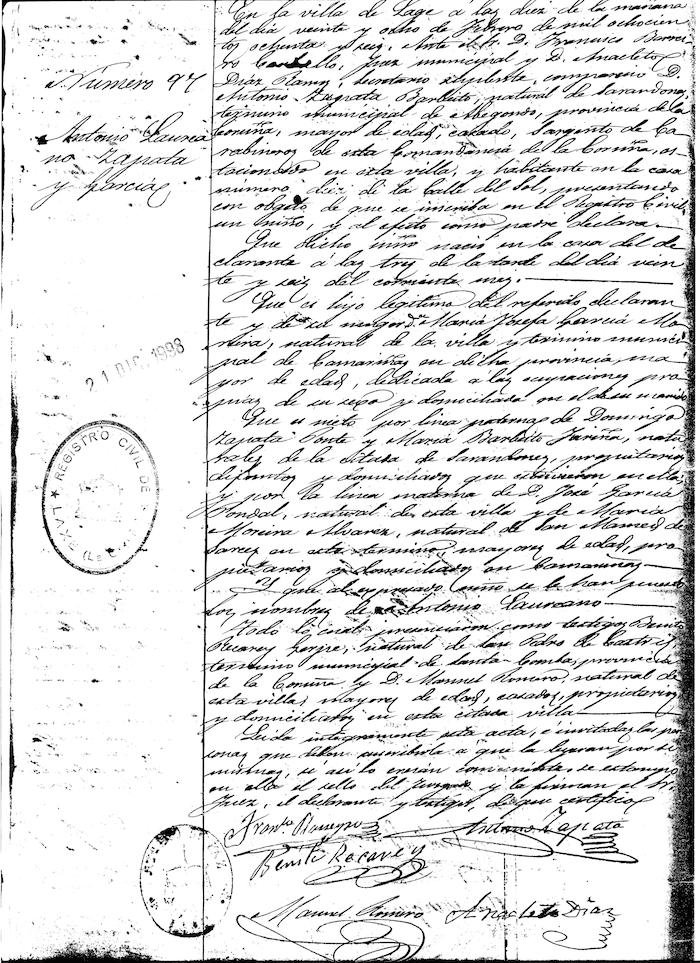 Número 97
Antonio Laurea
no Zapata
y García
21 DIC. 1998
REGISTRO CIVIL DE
LAXE (La C
En la villa de Lage á las diez de la mañana
del dia veinte y ocho de Febrero de mil ochocien
tos ochenta y seis, Ante el Sr. D. Francisco
Juez municipal y D. Anacleto
Díaz Ramos, Secretario suplente, compareció D.
Antonio Zapata Barbeito, natural de Sarandones,
termino municipal de Abegondo, provincia de la
Coruña, mayor de edad, casado, Sargento de Ca
rabineros de esta Comandancia de la Coruña, es
tacionado en esta villa, y habitante en la casa
numero diez de la Calle del Sol, presentando
con objeto de que se inscriba en el Registro Civil
un niño, y al efecto como padre declara
Que dicho niño nació en la casa del de
clarante á las tres de la tarde del dia vein
te y seis del corriente mes.
Que es hijo legitimo del referido declaran
te y de su muger D.ª María Josefa García Mo
reira, natural de la villa y termino munici
pal de Camariñas en dicha provincia, ma
yor de edad, dedicada a las ocupaciones pro
pias de su sexo y domiciliada en el de su marido
Que es nieto por linea paterna de Domingo
Zapata Ponte y María Barbeito Fariña, natu
rales de la citada de Sarandones, propietarios
difuntos y domiciliados que estuvieron en ella,
y por la linea materna de D. José García
natural de esta villa y de María
Moreira Alvarez, natural de San Mamed de
en este termino, mayores de edad, pro
pietarios y domiciliados en Camariñas
Y que al expresado niño se le han puesto
los nombres de Antonio Laureano
Todo lo cual presenciaron como testigos Benito
Recarey natural de San Pedro de
termino municipal de Santa Comba, provincia
de la Coruña y D. Manuel Romero, natural de
esta villa, mayores de edad, casados, propietarios
y domiciliados en esta citada villa
Leida integramente esta acta, é invitadas las per
sonas que deben suscribirla a que la leyeran por si
mismas, se así lo creian conveniente, se estampó
en ella el sello del Juzgado y la firman el Sr.
Juez, el declarante y testigos, de que certifico
Antonio Zapata
Benito Recarey
Manuel Romero Anacleto Díaz